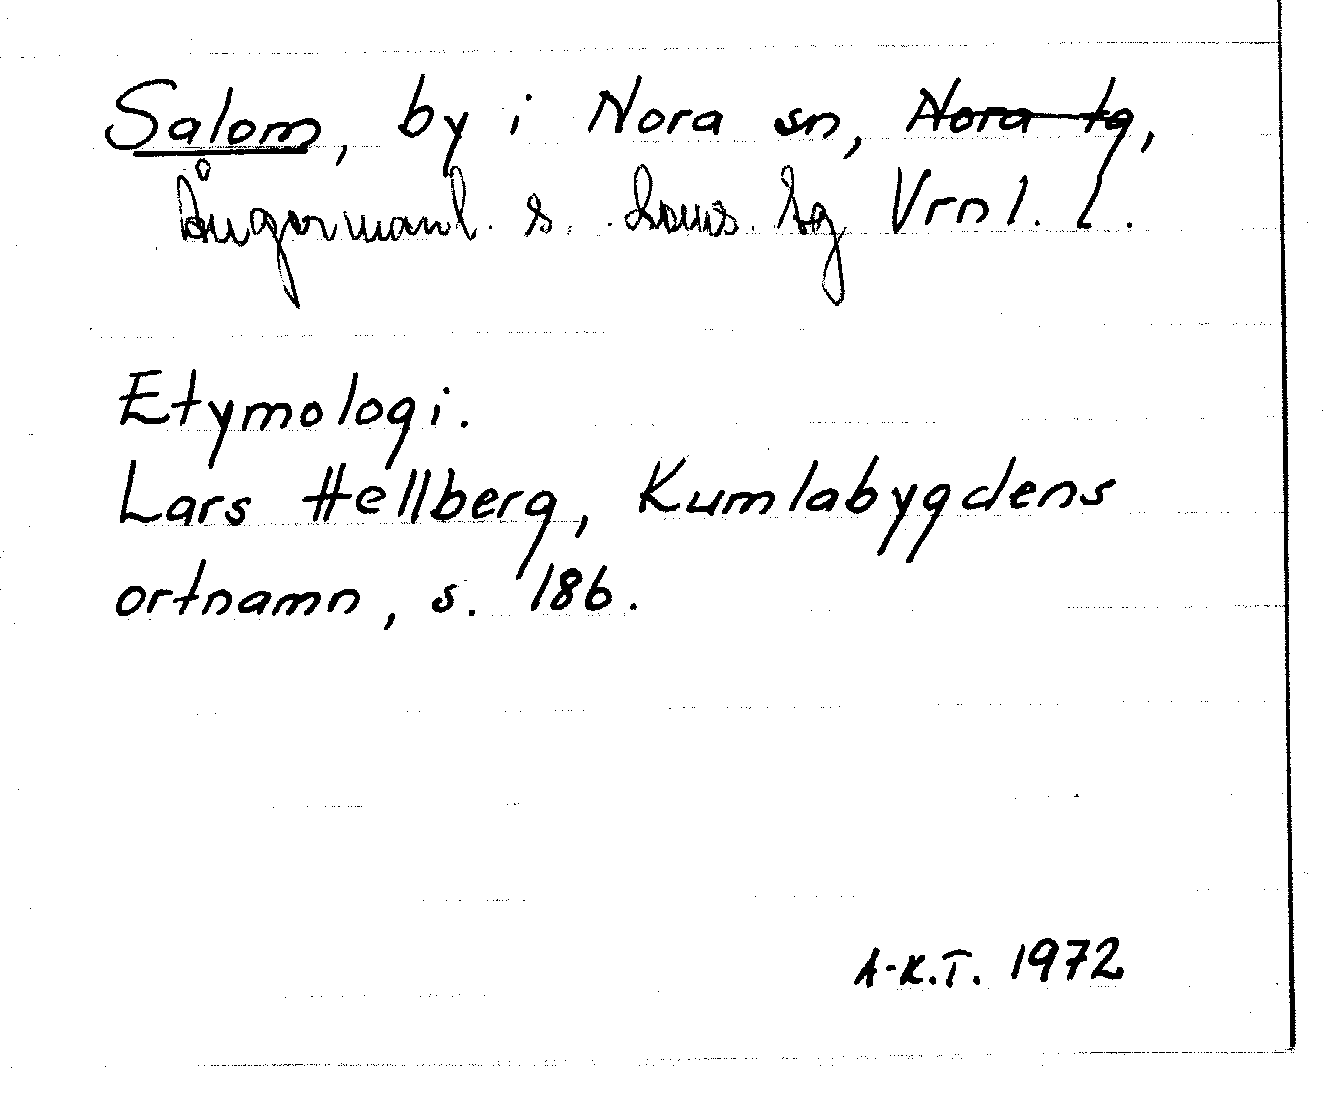 Salom, by i Nora sn, Nora tg,
Ångermanl. s. doms. tg Vrnl. l.
Etymologi.
Lars Hellberg, Kumlabygdens
ortnamn, s. 186.
A-K.T. 1972